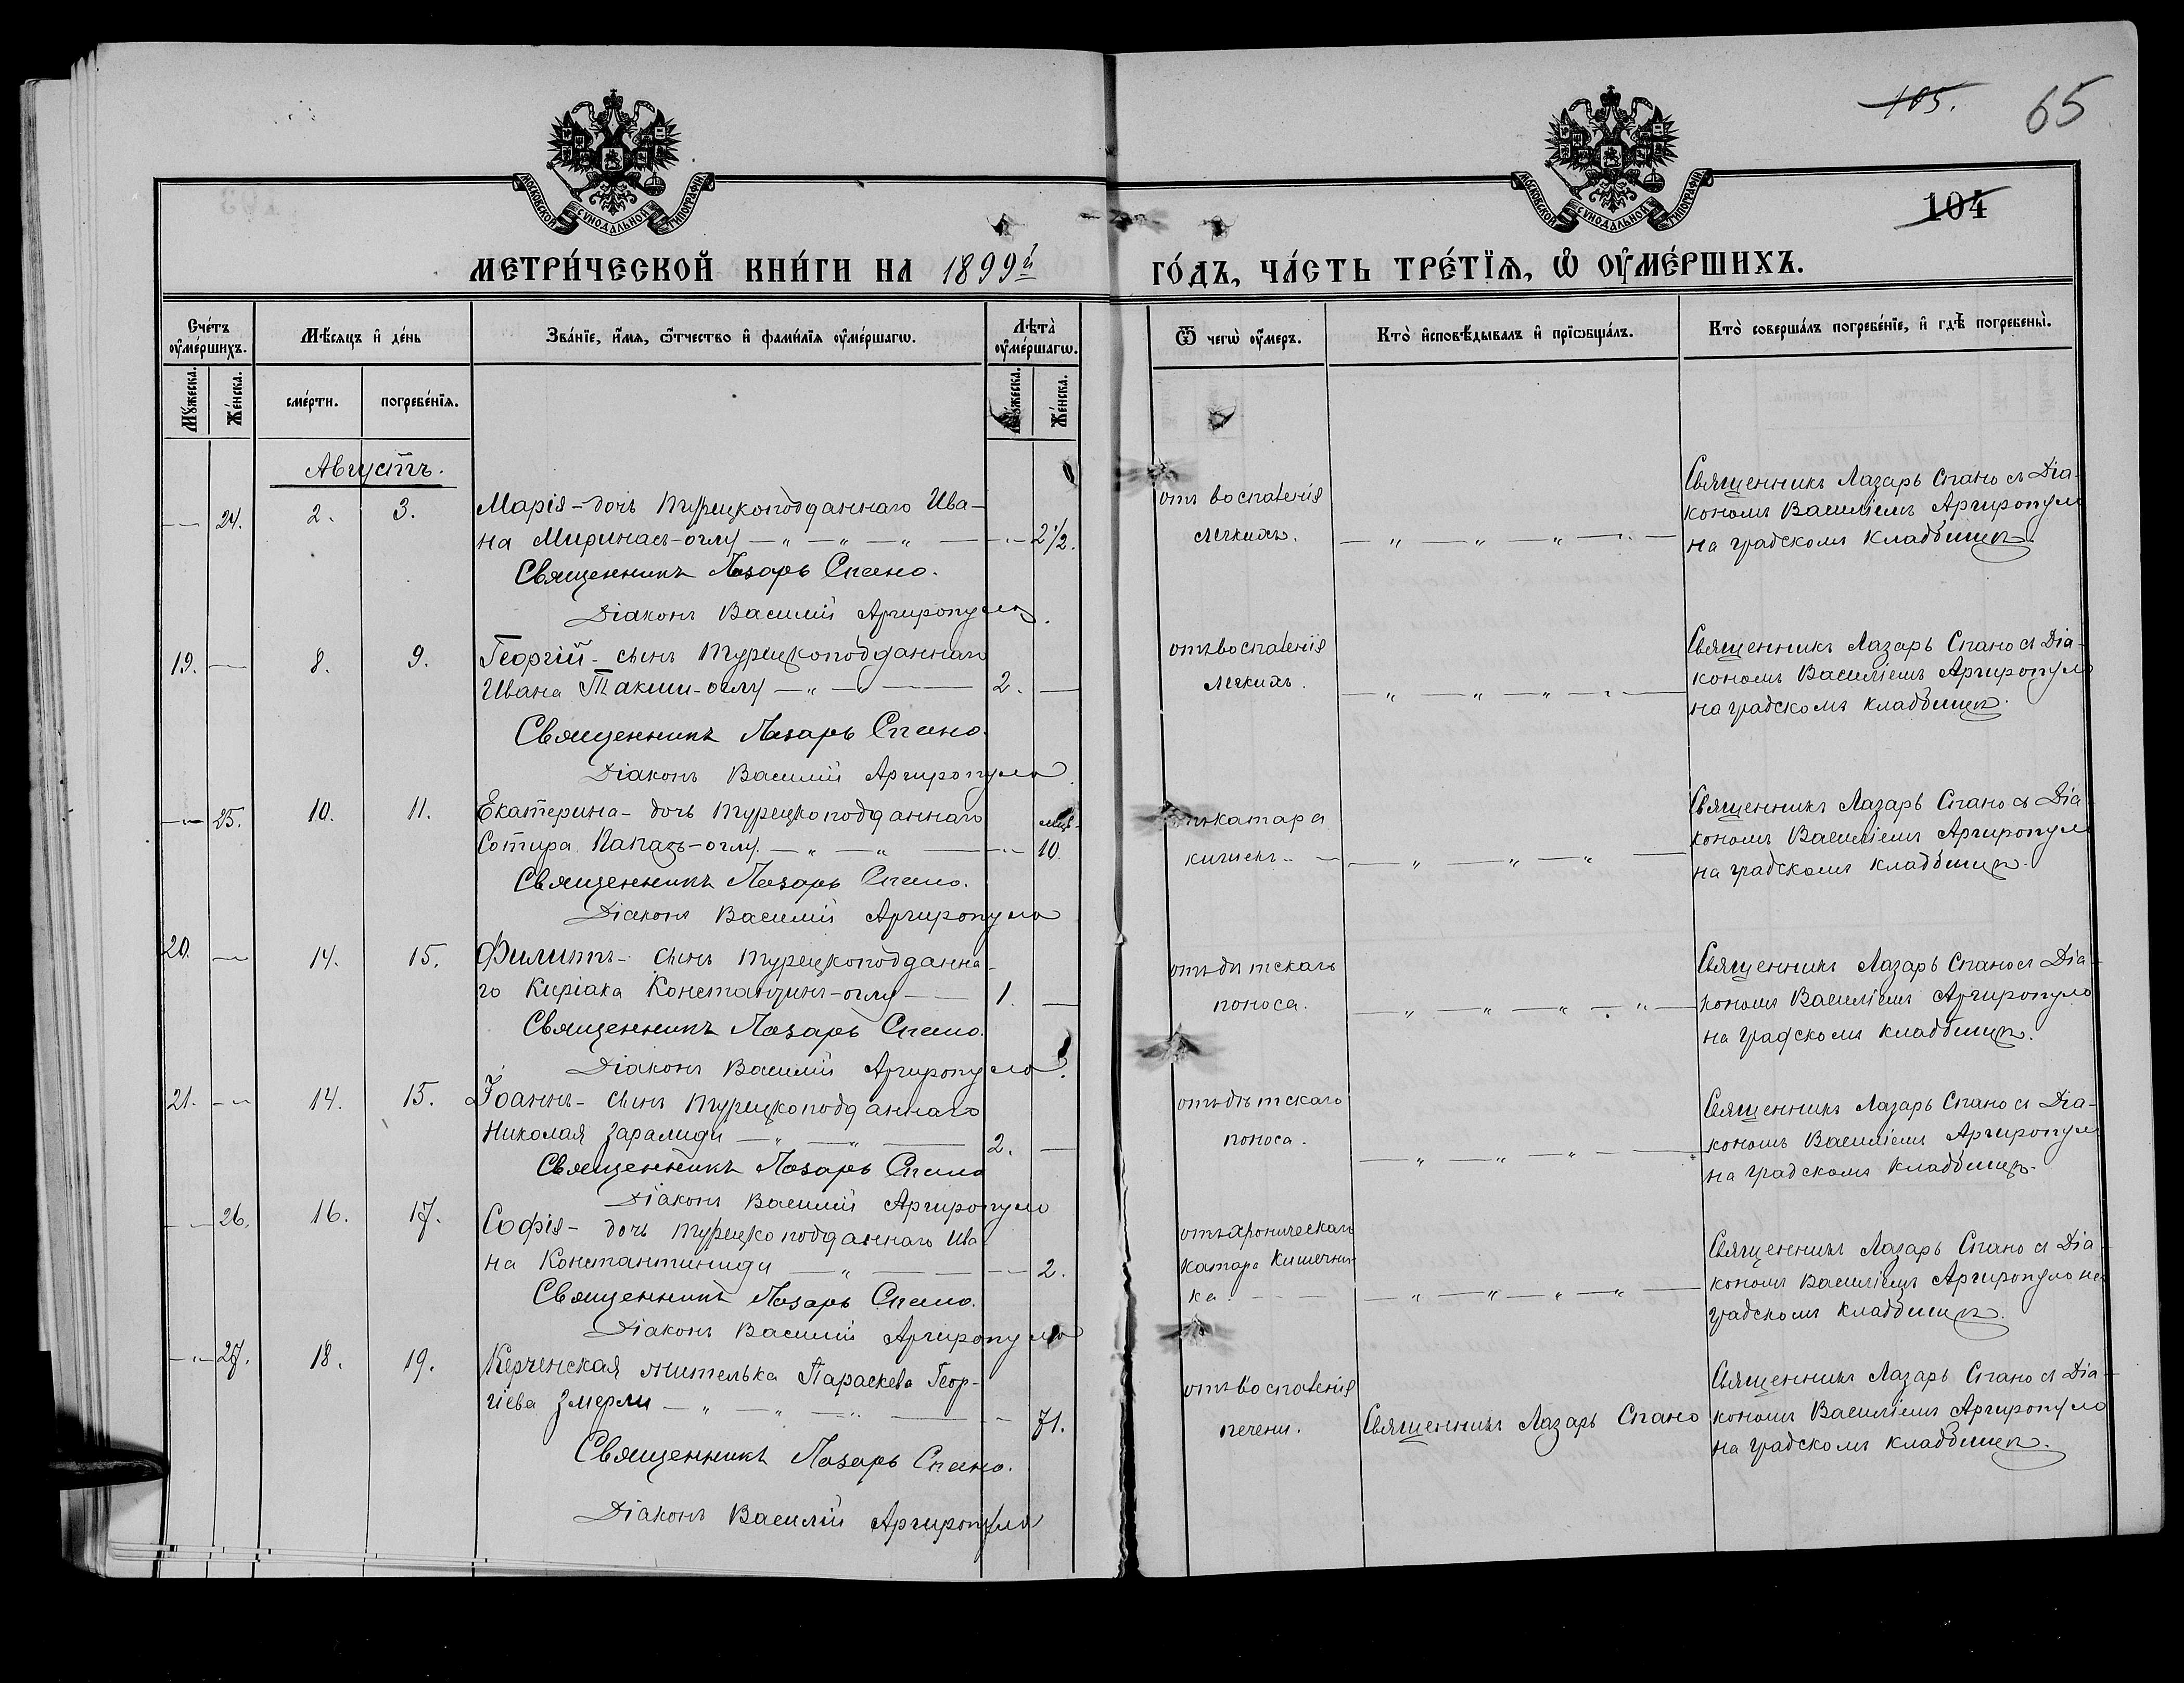 105. 65
104
МОСКОВСКОЙ СѴНОДАЛЬНОЙ ТИПОГРАФІИ
МОСКОВСКОЙ СѴНОДАЛЬНОЙ ТИПОГРАФІИ
МЕТРИ́ЧЕСКОЙ КНИ́ГИ НА 1899й ГО́ДЪ, ЧА́СТЬ ТРЕ́ТЇѦ, Ѡ҆ ОУ҆МЕ́РШИХЪ.
Сче́тъ оу҆ме́ршихъ.
Мꙋ́жеска.
Же́нска.
Мѣ́сяцъ и҆ де́нь
сме́рти.
погребе́нїѧ.
Зва́нїе, и҆́мѧ, ѻ҆́тчество и҆ фами́лїѧ оу҆ме́ршагѡ.
Лѣта̀ оу҆ме́ршагѡ.
Мꙋ́жеска.
Же́нска.
Ѿ чегѡ̀ оу҆́меръ.
Кто̀ и҆сповѣ́дывалъ и҆ прїѡбща́лъ.
Кто̀ соверша́лъ погребе́нїе, и҆ гдѣ̀ погребены̀.
Августъ.
24. 2. 3.
Марія - дочь турецкоподданнаго Ива-
на Миринасъ-оглу 2 1/2.
Священникъ Лазарь Спано.
Діаконъ Василій Аргиропуло.
отъ воспаленія
легкихъ.
Священникъ Лазарь Спано съ Діа-
кономъ Василіемъ Аргиропуло
на градскомъ кладбищѣ.
19. 8. 9.
Георгій - сынъ турецкоподданнаго
Ивана Такши-оглу 2.
Священникъ Лазарь Спано.
Діаконъ Василій Аргиропуло.
отъ воспаленія
легкихъ.
Священникъ Лазарь Спано съ Діа-
кономъ Василіемъ Аргиропуло
на градскомъ кладбищѣ.
25. 10. 11.
Екатерина - дочь турецкоподданнаго мѣс.
Сотира Папазъ-оглу. 10.
Священникъ Лазарь Спано.
Діаконъ Василій Аргиропуло
катара
кишекъ
Священникъ Лазарь Спано съ Діа-
кономъ Василіемъ Аргиропуло
на градскомъ кладбищѣ.
20. 14. 15.
Филиппъ - сынъ турецкоподданна-
го Киріака Константинъ-оглу 1.
Священникъ Лазарь Спано.
Діаконъ Василій Аргиропуло.
отъ дѣтскаго
поноса.
Священникъ Лазарь Спано съ Діа-
кономъ Василіемъ Аргиропуло
на градскомъ кладбищѣ.
21. 14. 15.
Іоаннъ - сынъ турецкоподданнаго
Николая Заралиди 2.
Священникъ Лазарь Спано
Діаконъ Василій Аргиропуло
отъ дѣтскаго
поноса.
Священникъ Лазарь Спано съ Діа-
кономъ Василіемъ Аргиропуло
на градскомъ кладбищѣ.
26. 16. 17.
Софія - дочь турецкоподданнаго Ива-
на Константиниди 2.
Священникъ Лазарь Спано.
Діаконъ Василій Аргиропуло
отъ хроническаго
катара кишечни-
ка.
Священникъ Лазарь Спано съ Діа-
кономъ Василіемъ Аргиропуло на
градскомъ кладбищѣ.
27. 18. 19.
Керченская жителька Параскева Геор-
гіева Змерли 71.
Священникъ Лазарь Спано.
Діаконъ Василій Аргиропуло
отъ воспаленія
печени.
Священникъ Лазарь Спано
Священникъ Лазарь Спано съ Діа-
кономъ Василіемъ Аргиропуло
на градскомъ кладбищѣ.